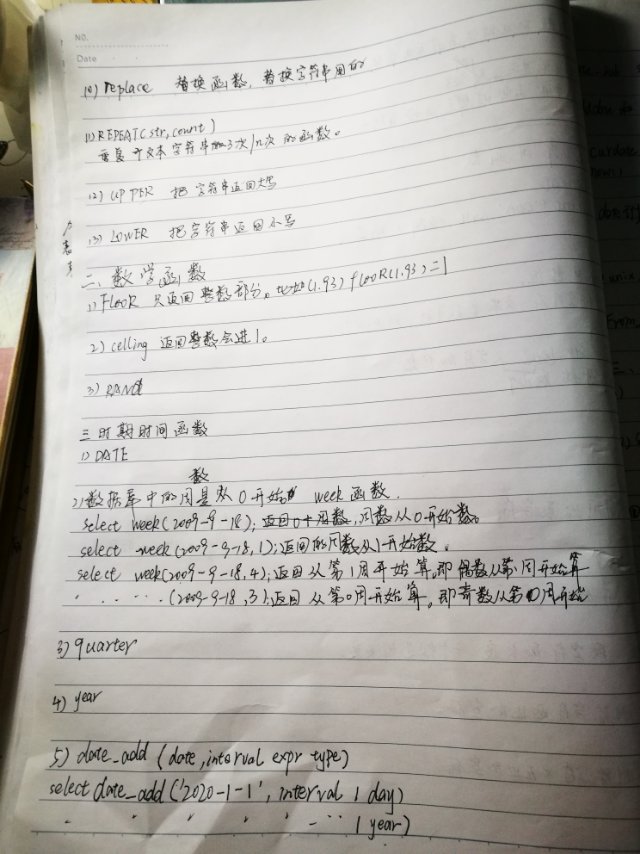 NO.
Date
10) replace 替换函数,替换字符串用的
11) REPEAT(str,count)
重复 文本字符串 3次/n次 的函数。
12) UPPER 把字符串返回大写
13) LOWER 把字符串返回小写
二、数学函数
1) FLOOR 只返回整数部分。比如(1.93) flooR(1.93)=1
2) ceiling 返回整数会进1。
3) RAND
三 时期时间函数
1) DATE
数
2) 数据库中的周是从0开始 week函数.
select week(2009-9-18);返回0+周数,周数从0开始数。
select week(2009-9-18,1);返回的周数从1开始数.
select week(2009-9-18,4);返回从第1周开始算,即偶数从第1周开始算
" ...... (2009-9-18,3);返回从第0周开始算。即奇数从第0周开始
3) quarter
4) year
5) date_add (date,interval expr type)
select date_add('2020-1-1', interval 1 day)
" " " " " --- 1 year)